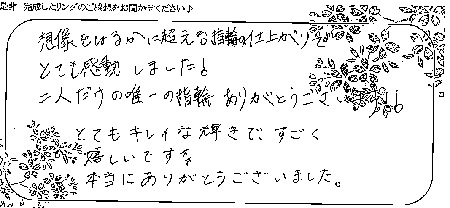 是非 完成したリングのご感想をお聞かせください♪
想像をはるかに超える指輪の仕上がりで
とても感動しました!
二人だけの唯一の指輪 ありがとうござい
とてもキレイな輝きで、すごく
嬉しいです。
本当にありがとうございました。